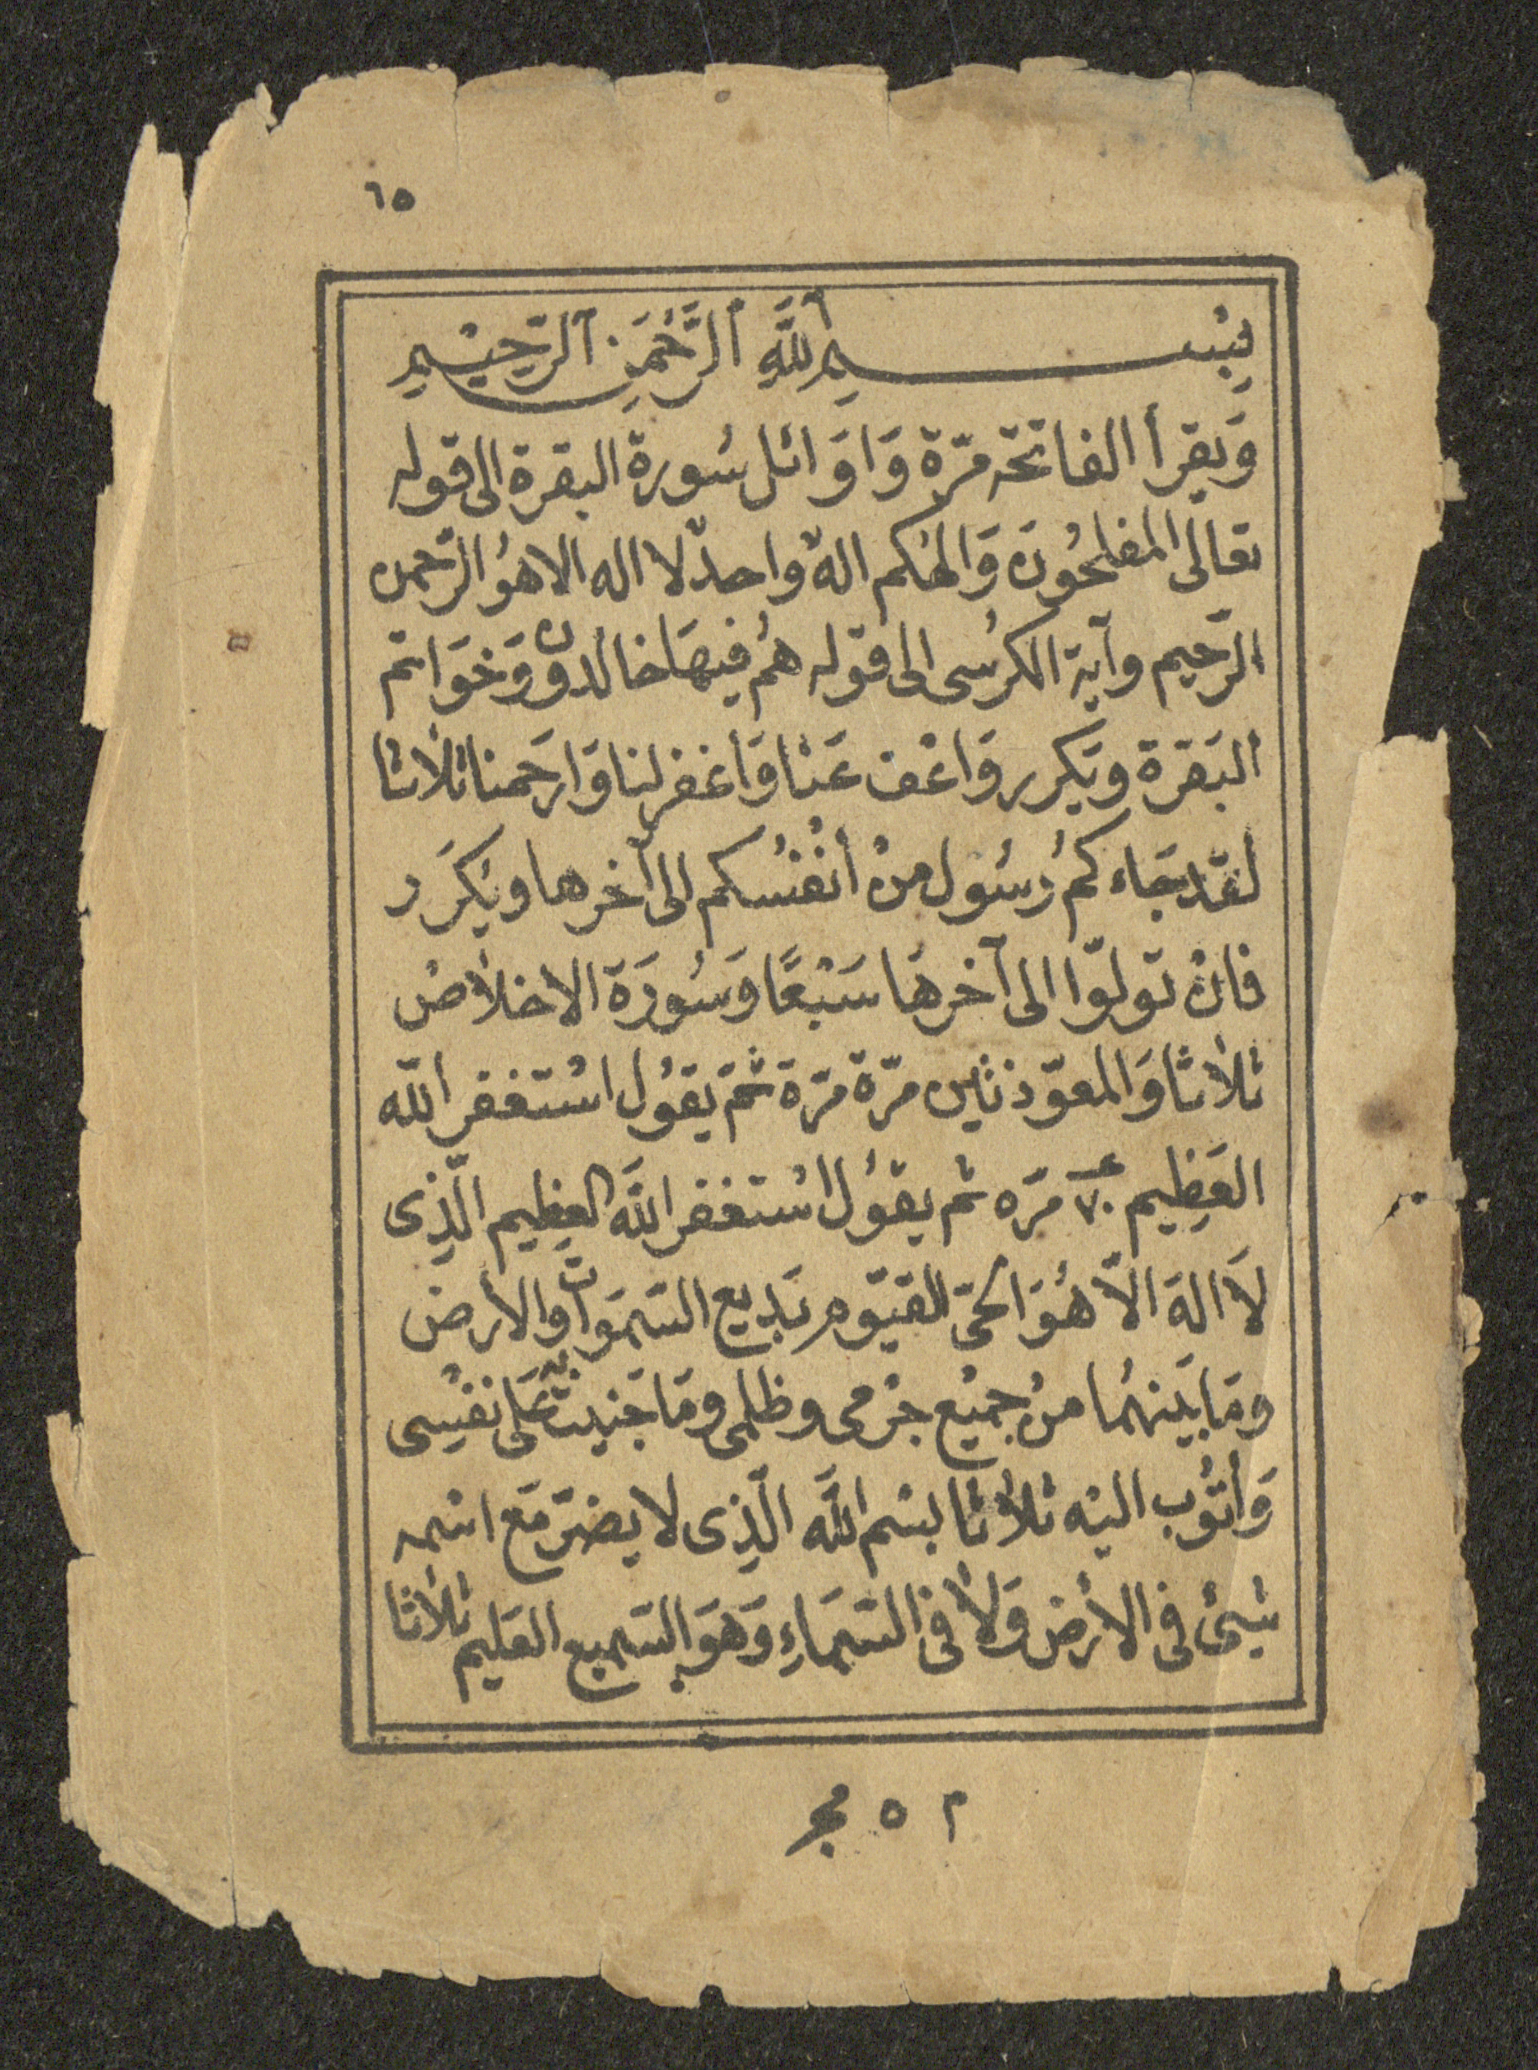 ٦٥
بِسْمِ اللَّهِ الرَّحْمَنِ الرَّحِيْمِ
وَيقرأ الفاتحة مرّة وَاوَائل سُورة البقرة الى قوله
تعالى المفلحُون وَالهُكم الهٌ واحدٌ لا اله الا هوُ الرّحمن
الرّحيم وآية الكرُسى الى قوله همُ فيهَا خالدون وَخوَاتم
البَقرَة ويَكرر وَاعْف عَنْا وَأغفر لنا وَارحَمنا ثلاثا
لقَد جَاءكمُ رسُول منْ أنفُسُكم الى آخرها ويكرَر
فانْ تولوّا الى آخرهَا سَبْعًا وَسُورَة الاخلاصْ
ثلاثا وَالمعوّذتين مرّة مرّة ثمّ يقوُل اسْتغفر الله
العَظِيم ٧٠ مرَه ثم يقوُل اسْتغفر اللَّه العظِيم الّذِى
لاَ الهَ الاّ هُوَ الحىّ القيّوم بَديع السّموَات والأرض
ومَا بَينهُما منْ جميْع جرْمى وظلمى ومَا جَنيت به عَلى نفسْى
وَأتوُب اليْه ثلاثا بسْم اللَّه الّذِى لا يضرّ مَع اسْمه
شيئ فى الأرْض وَلاَ فى السّمَاءِ وَهوَ السّميع العَليم ثلاثا
م ٥ مجر